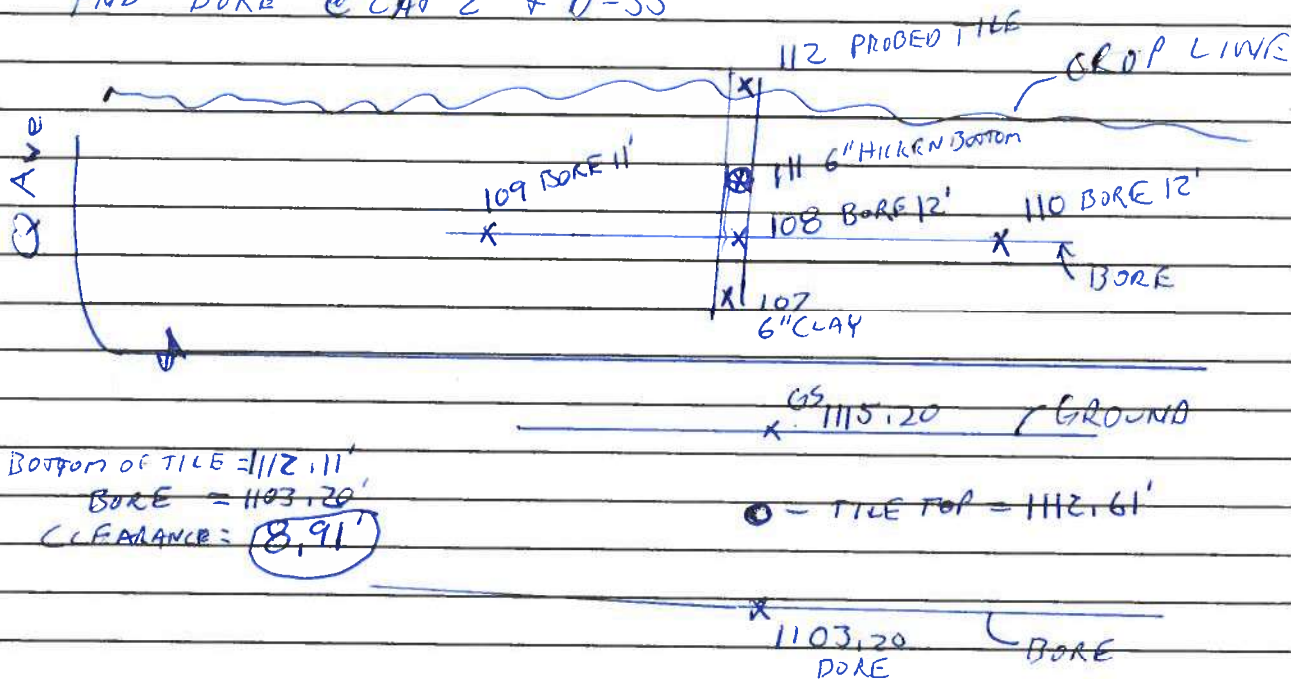 BORE @
112 PROBED TILE
CROP LINE
Q Ave
111 6" HICKENBOTTOM
109 BORE 11'
108 BORE 12'
110 BORE 12'
BORE
107
6" CLAY
GS 1115.20
GROUND
BOTTOM OF TILE = 1112.11'
BORE = 1103.20'
CLEARANCE = 8.91'
TILE TOP = 1112.61'
1103.20
BORE
BORE